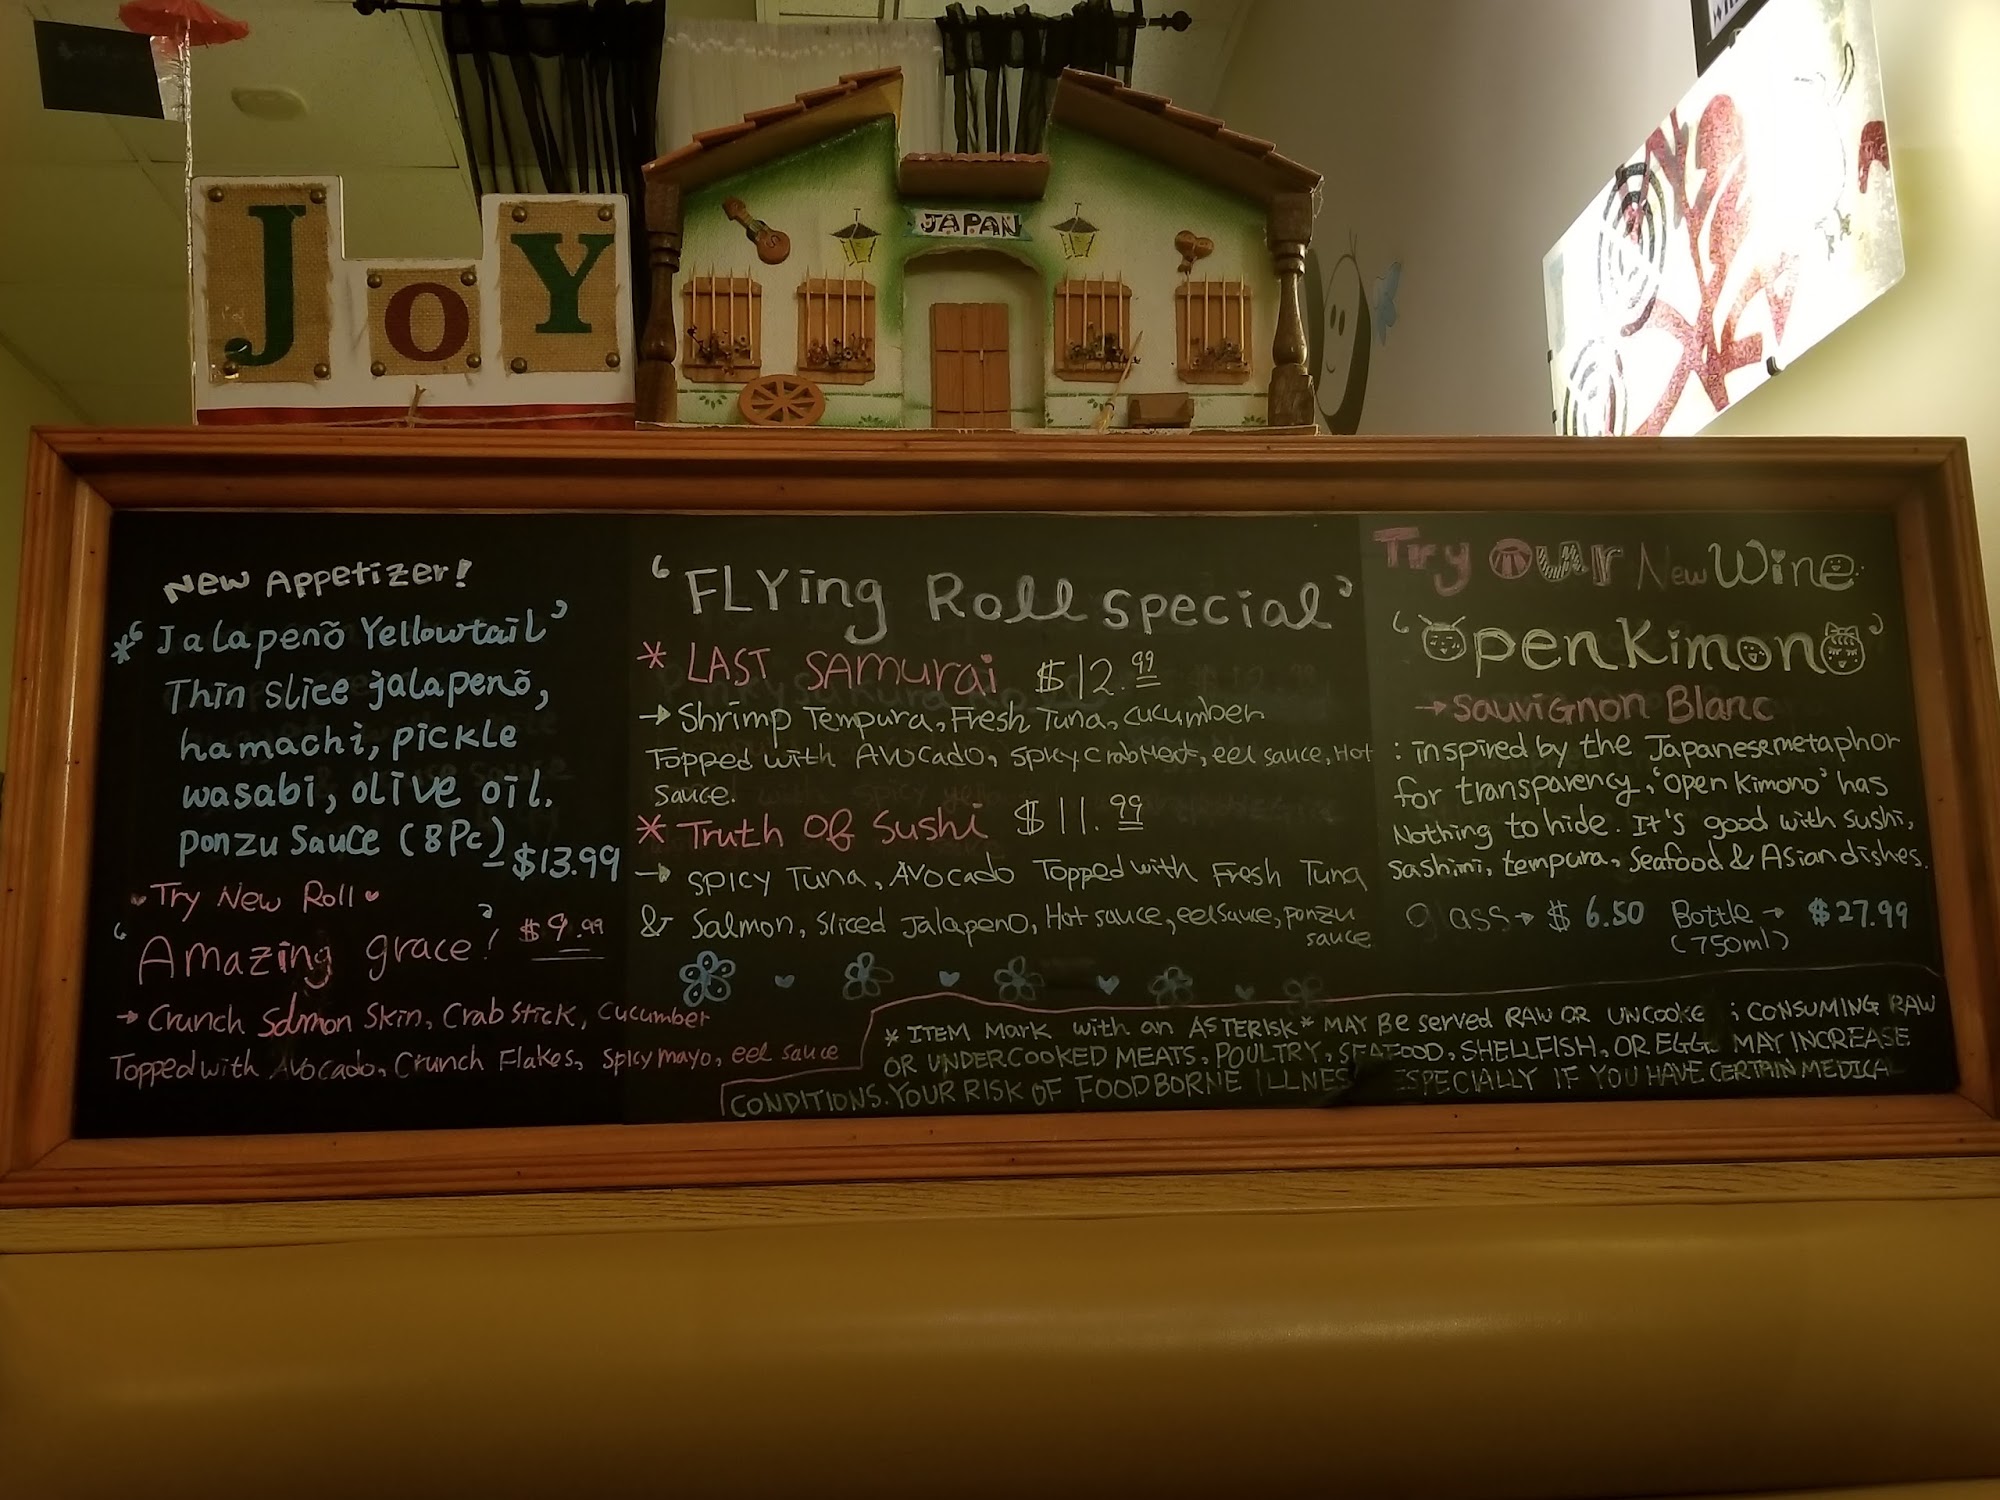 JOY
JAPAN
New Appetizer!
*'Jalapenõ Yellowtail'
Thin slice jalapenõ,
hamachi, pickle
wasabi, olive oil.
ponzu sauce (8pc)
$13.99
Try New Roll
'Amazing grace'! $9.99
→ Crunch Salmon Skin, Crab Stick, Cucumber
Topped with Avocado, Crunch Flakes, spicy mayo, eel sauce
'FLYing Roll special'
* LAST SAMURAI $12.99
→ Shrimp Tempura, Fresh Tuna, cucumber
Topped with Avocado, spicy crab meat, eel sauce, Hot
sauce.
* Truth OF Sushi $11.99
→ SPICY TUNA, AVOCADO Topped with Fresh Tuna
& Salmon, sliced Jalapeno, Hot sauce, eel sauce, ponzu
sauce
Try our New Wine
'Open Kimono'
→ Sauvignon Blanc
: inspired by the Japanese metaphor
for transparency, 'Open Kimono' has
Nothing to hide. It's good with sushi,
sashimi, tempura, Seafood & Asian dishes.
glass → $6.50 Bottle → $27.99
(750ml)
* ITEM MARK with an ASTERISK* MAY Be served RAW OR UNCOOKE ; CONSUMING RAW
OR UNDERCOOKED MEATS, POULTRY, SEAFOOD, SHELLFISH, OR EGG MAY INCREASE
CONDITIONS. YOUR RISK OF FOODBORNE ILLNES ESPECIALLY IF YOU HAVE CERTAIN MEDICAL